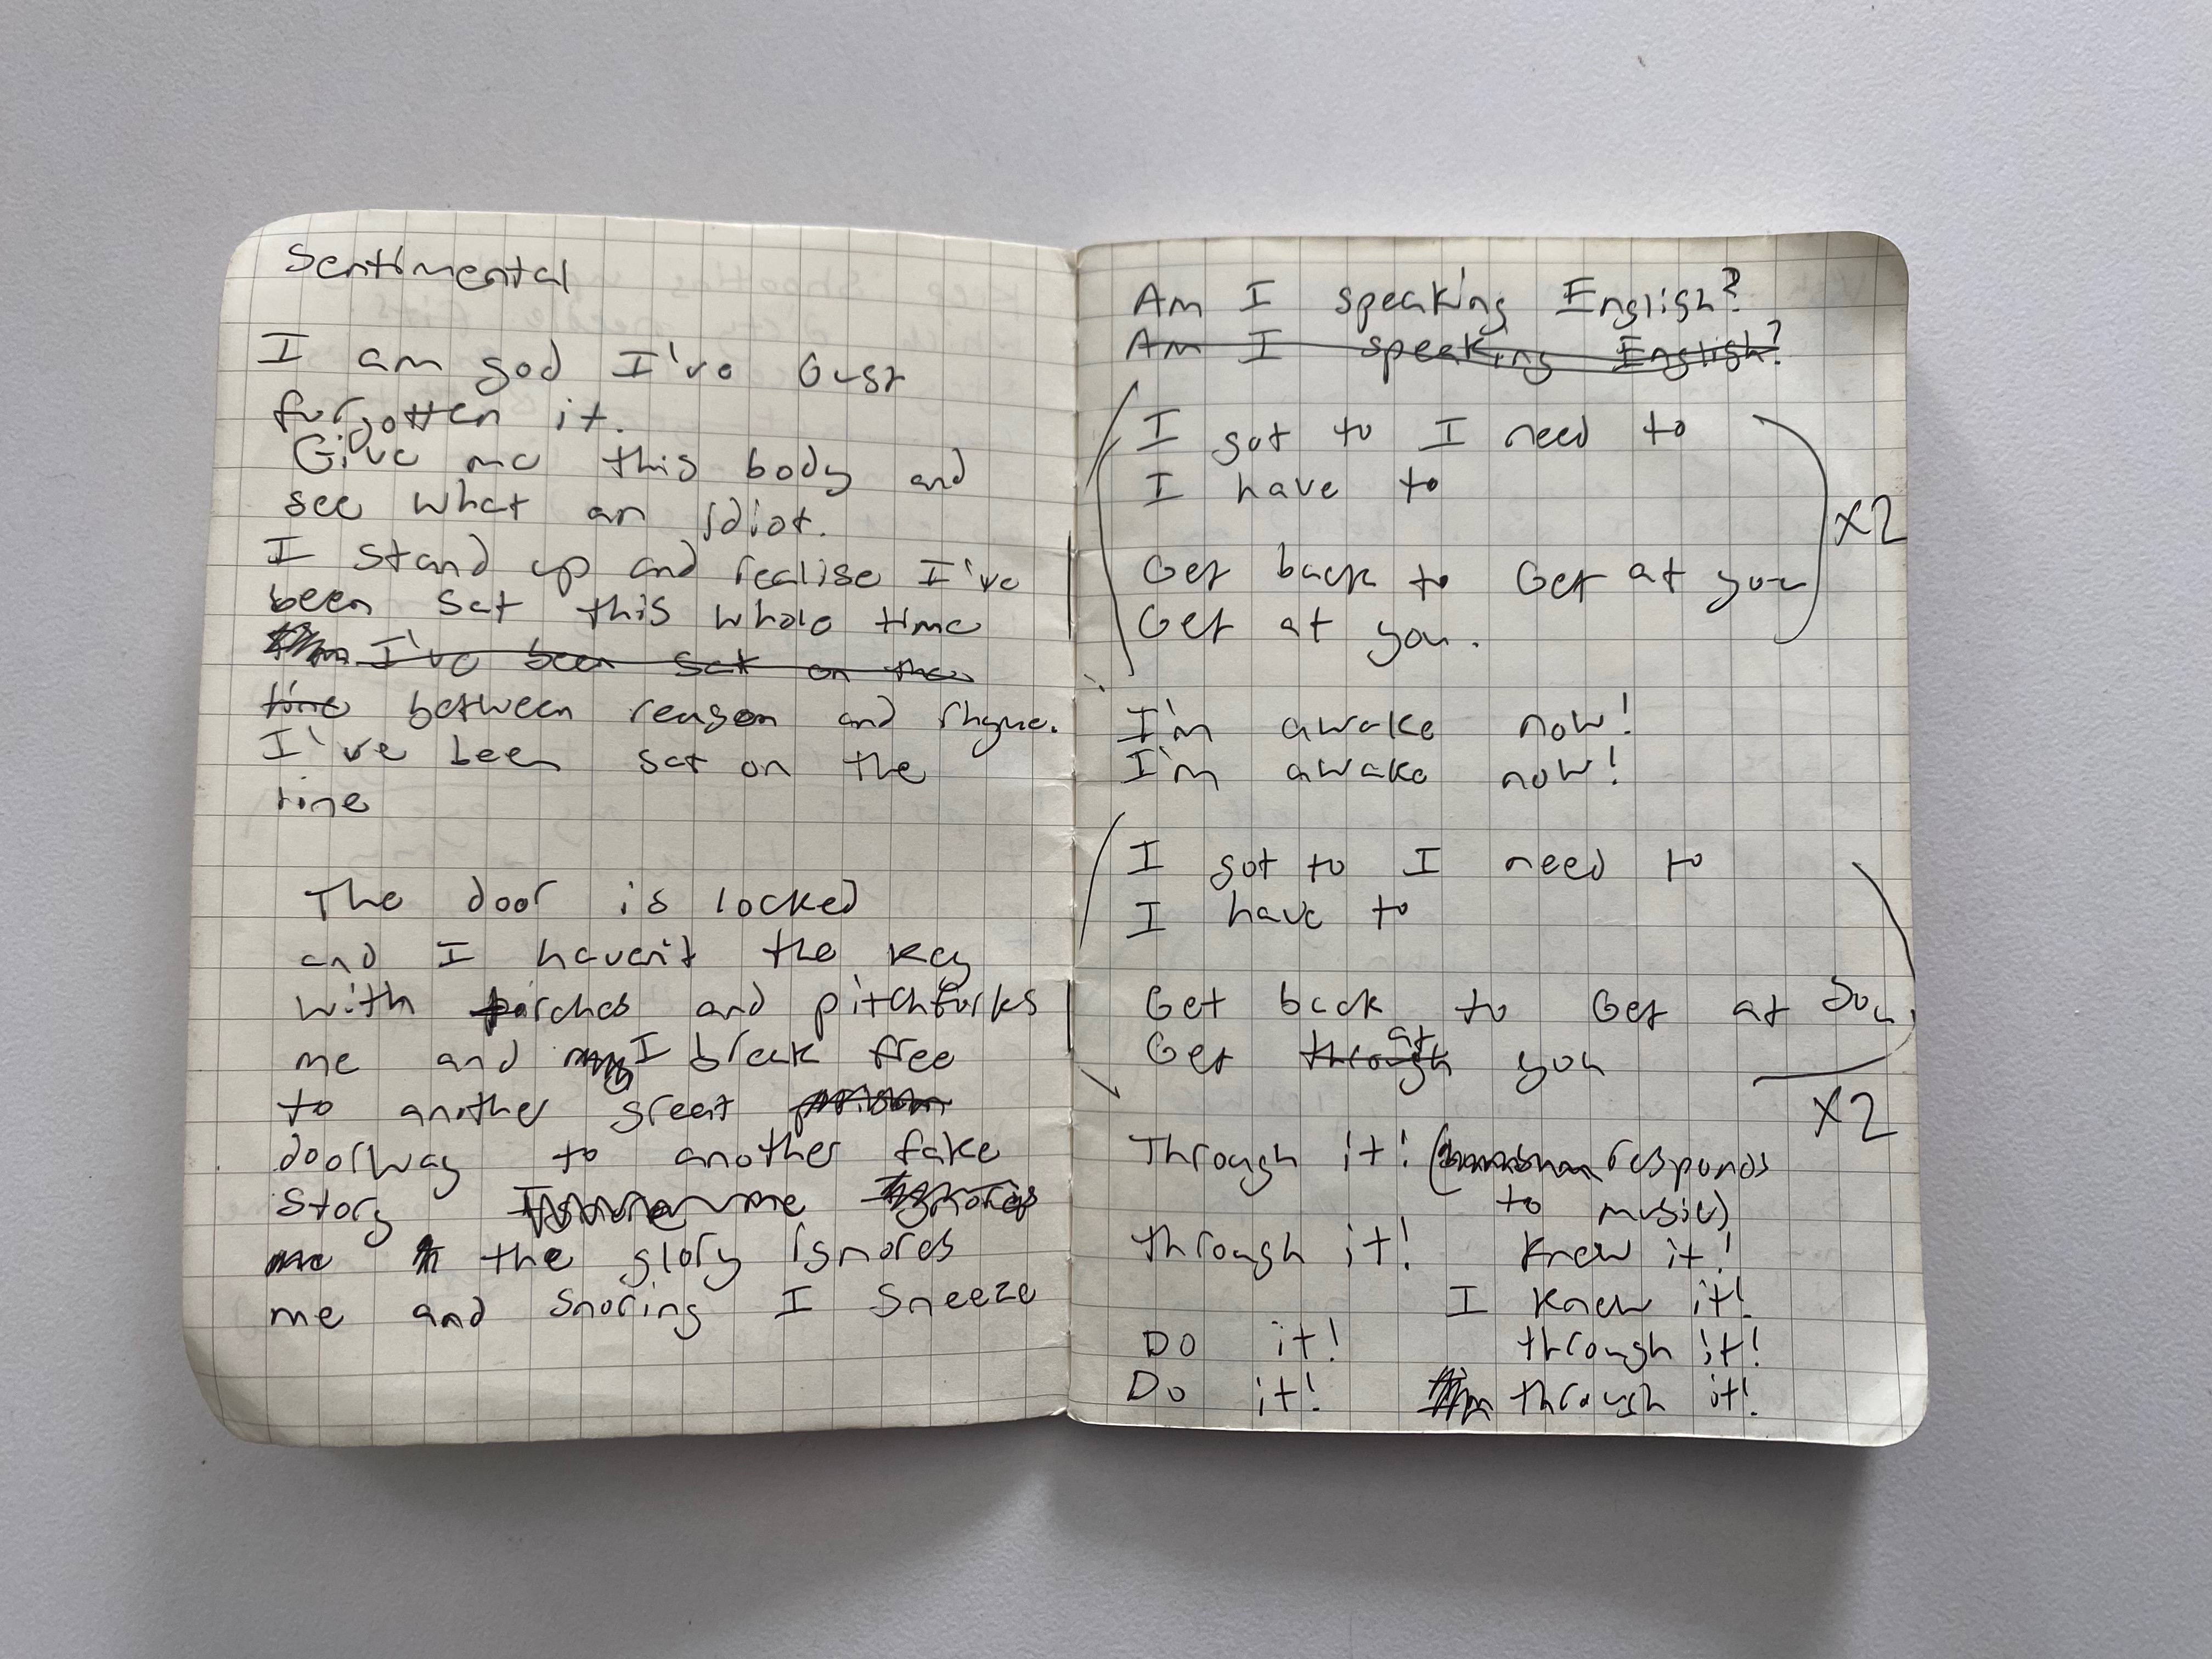 Sentimental
I am god I've Just
forgotten it.
Give me this body and
see what an idiot.
I stand up and realise I've
been sat this whole time
I've been sat on the
line between reason and rhyme.
I've been sat on the
line
The door is locked
and I haven't the key
with torches and pitchforks
me and I break free
to another great prison
doorway to another fake
story Ignore me Ignores
me the glory ignores
me and snoring I sneeze
Am I speaking English?
Am I speaking English?
I got to I need to
I have to
Get back to Get at you
Get at you.
X2
I'm awake now!
I'm awake now!
I got to I need to
I have to
Get back to Get at you
Get through at you
X2
Through it! (responds
to music)
through it! Knew it!
I knew it!
Do it! through it!
Do it! through it!